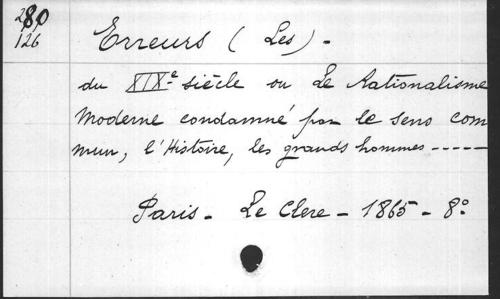 280
126
Erreurs (Les) -
du XIXe siècle ou Le Rationalisme
Moderne condamné par le sens com
mun, l'Histoire, les grands hommes -----
Paris - Le Clere - 1865 - 8°